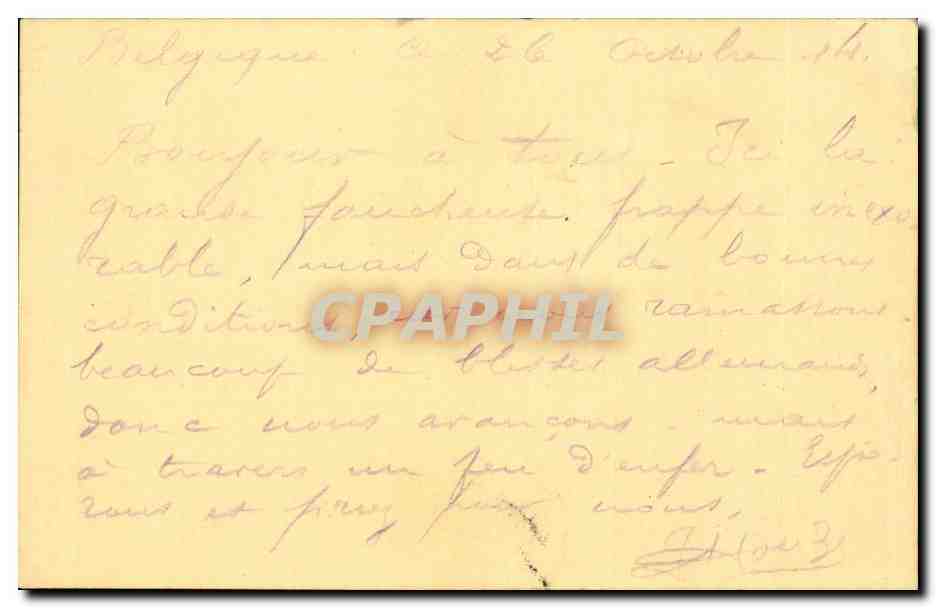 Belgique ce 26 Octobre 14.
Bonjour à tous - Ici la
grande faucheuse frappe inexo-
rable, mais dans de bonnes
conditions, car nous ramassons
beaucoup de blessés allemands,
donc nous avançons - mais
à travers un feu d'enfer - Espé-
rons et priez pour nous.
CPAPHIL